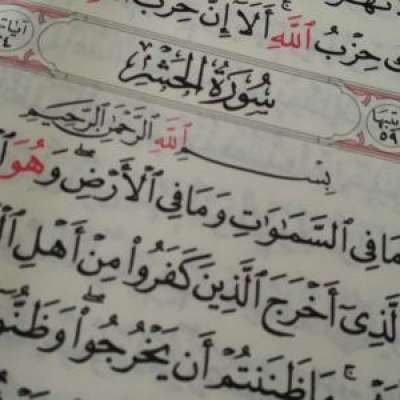 حِزْبُ ٱللَّهِ ۚ أَلَآ إِنَّ حِزْبَ
سُورَةُ الحَشْرِ
٥٩
بِسْمِ ٱللَّهِ ٱلرَّحْمَٰنِ ٱلرَّحِيمِ
مَا فِي ٱلسَّمَٰوَٰتِ وَمَا فِي ٱلْأَرْضِ ۖ وَهُوَ
ٱلَّذِىٓ أَخْرَجَ ٱلَّذِينَ كَفَرُوا۟ مِنْ أَهْلِ
مَا ظَنَنتُمْ أَن يَخْرُجُوا۟ ۖ وَظَنُّوٓا۟